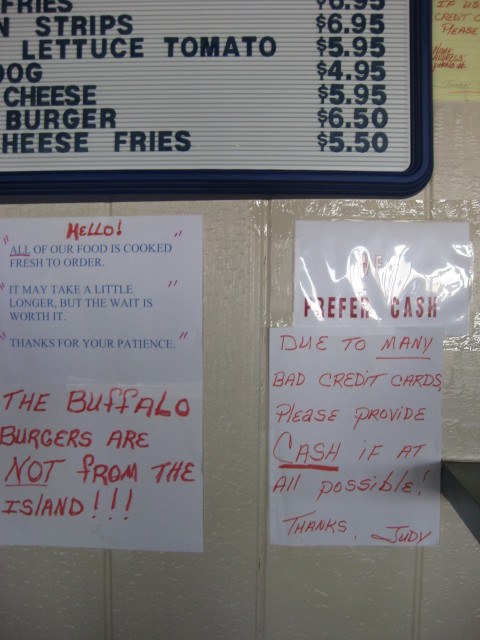 FRIES $6.95
STRIPS $6.95
LETTUCE TOMATO $5.95
$4.95
CHEESE $5.95
BURGER $6.50
FRIES $5.50
IF
CREDIT
PLEASE
HELLO!
" ALL OF OUR FOOD IS COOKED "
FRESH TO ORDER.
" IT MAY TAKE A LITTLE "
LONGER, BUT THE WAIT IS
WORTH IT.
" THANKS FOR YOUR PATIENCE. "
THE BUffALO
BURGERS ARE
NOT fROM THE
ISlAND!!!
PREFER CASH
DUE TO MANY
BAD CREDIT CARDS,
PlEASE PROVIDE
CASH if AT
All possiblE!
THANKS, JUDY